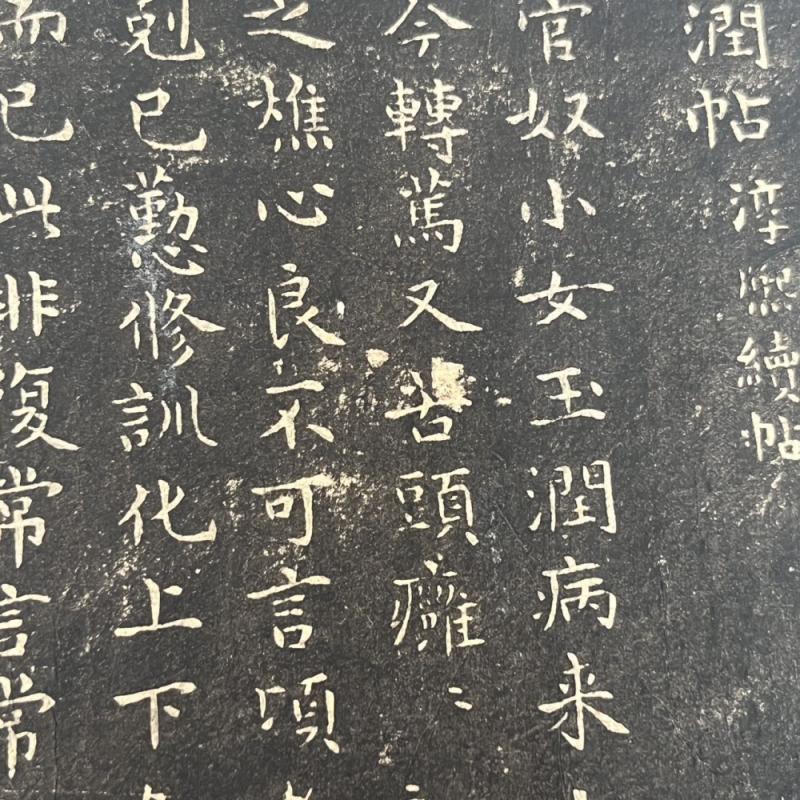 潤帖 淳熙續帖
官奴小女玉潤病来
今轉篤又苦頭癰〻
之燋心良不可言頃
剋己懃修訓化上下
而已此非復常言常